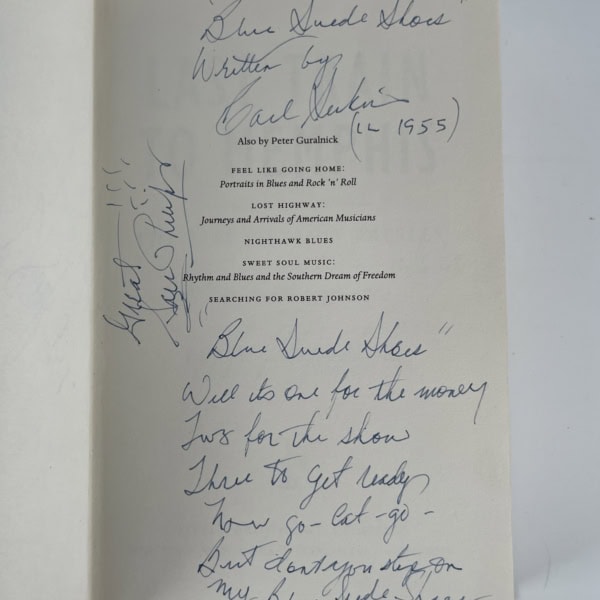 "Blue Suede Shoes"
Written by
Carl Perkins
(in 1955)
Also by Peter Guralnick
FEEL LIKE GOING HOME:
Portraits in Blues and Rock 'n' Roll
LOST HIGHWAY:
Journeys and Arrivals of American Musicians
NIGHTHAWK BLUES
SWEET SOUL MUSIC:
Rhythm and Blues and the Southern Dream of Freedom
SEARCHING FOR ROBERT JOHNSON
Great!!!
Sam Phillips
"Blue Suede Shoes"
Well its one for the money
Two for the show
Three to get ready
Now go-Cat-go-
But dont you step on
My Blue Suede Shoes